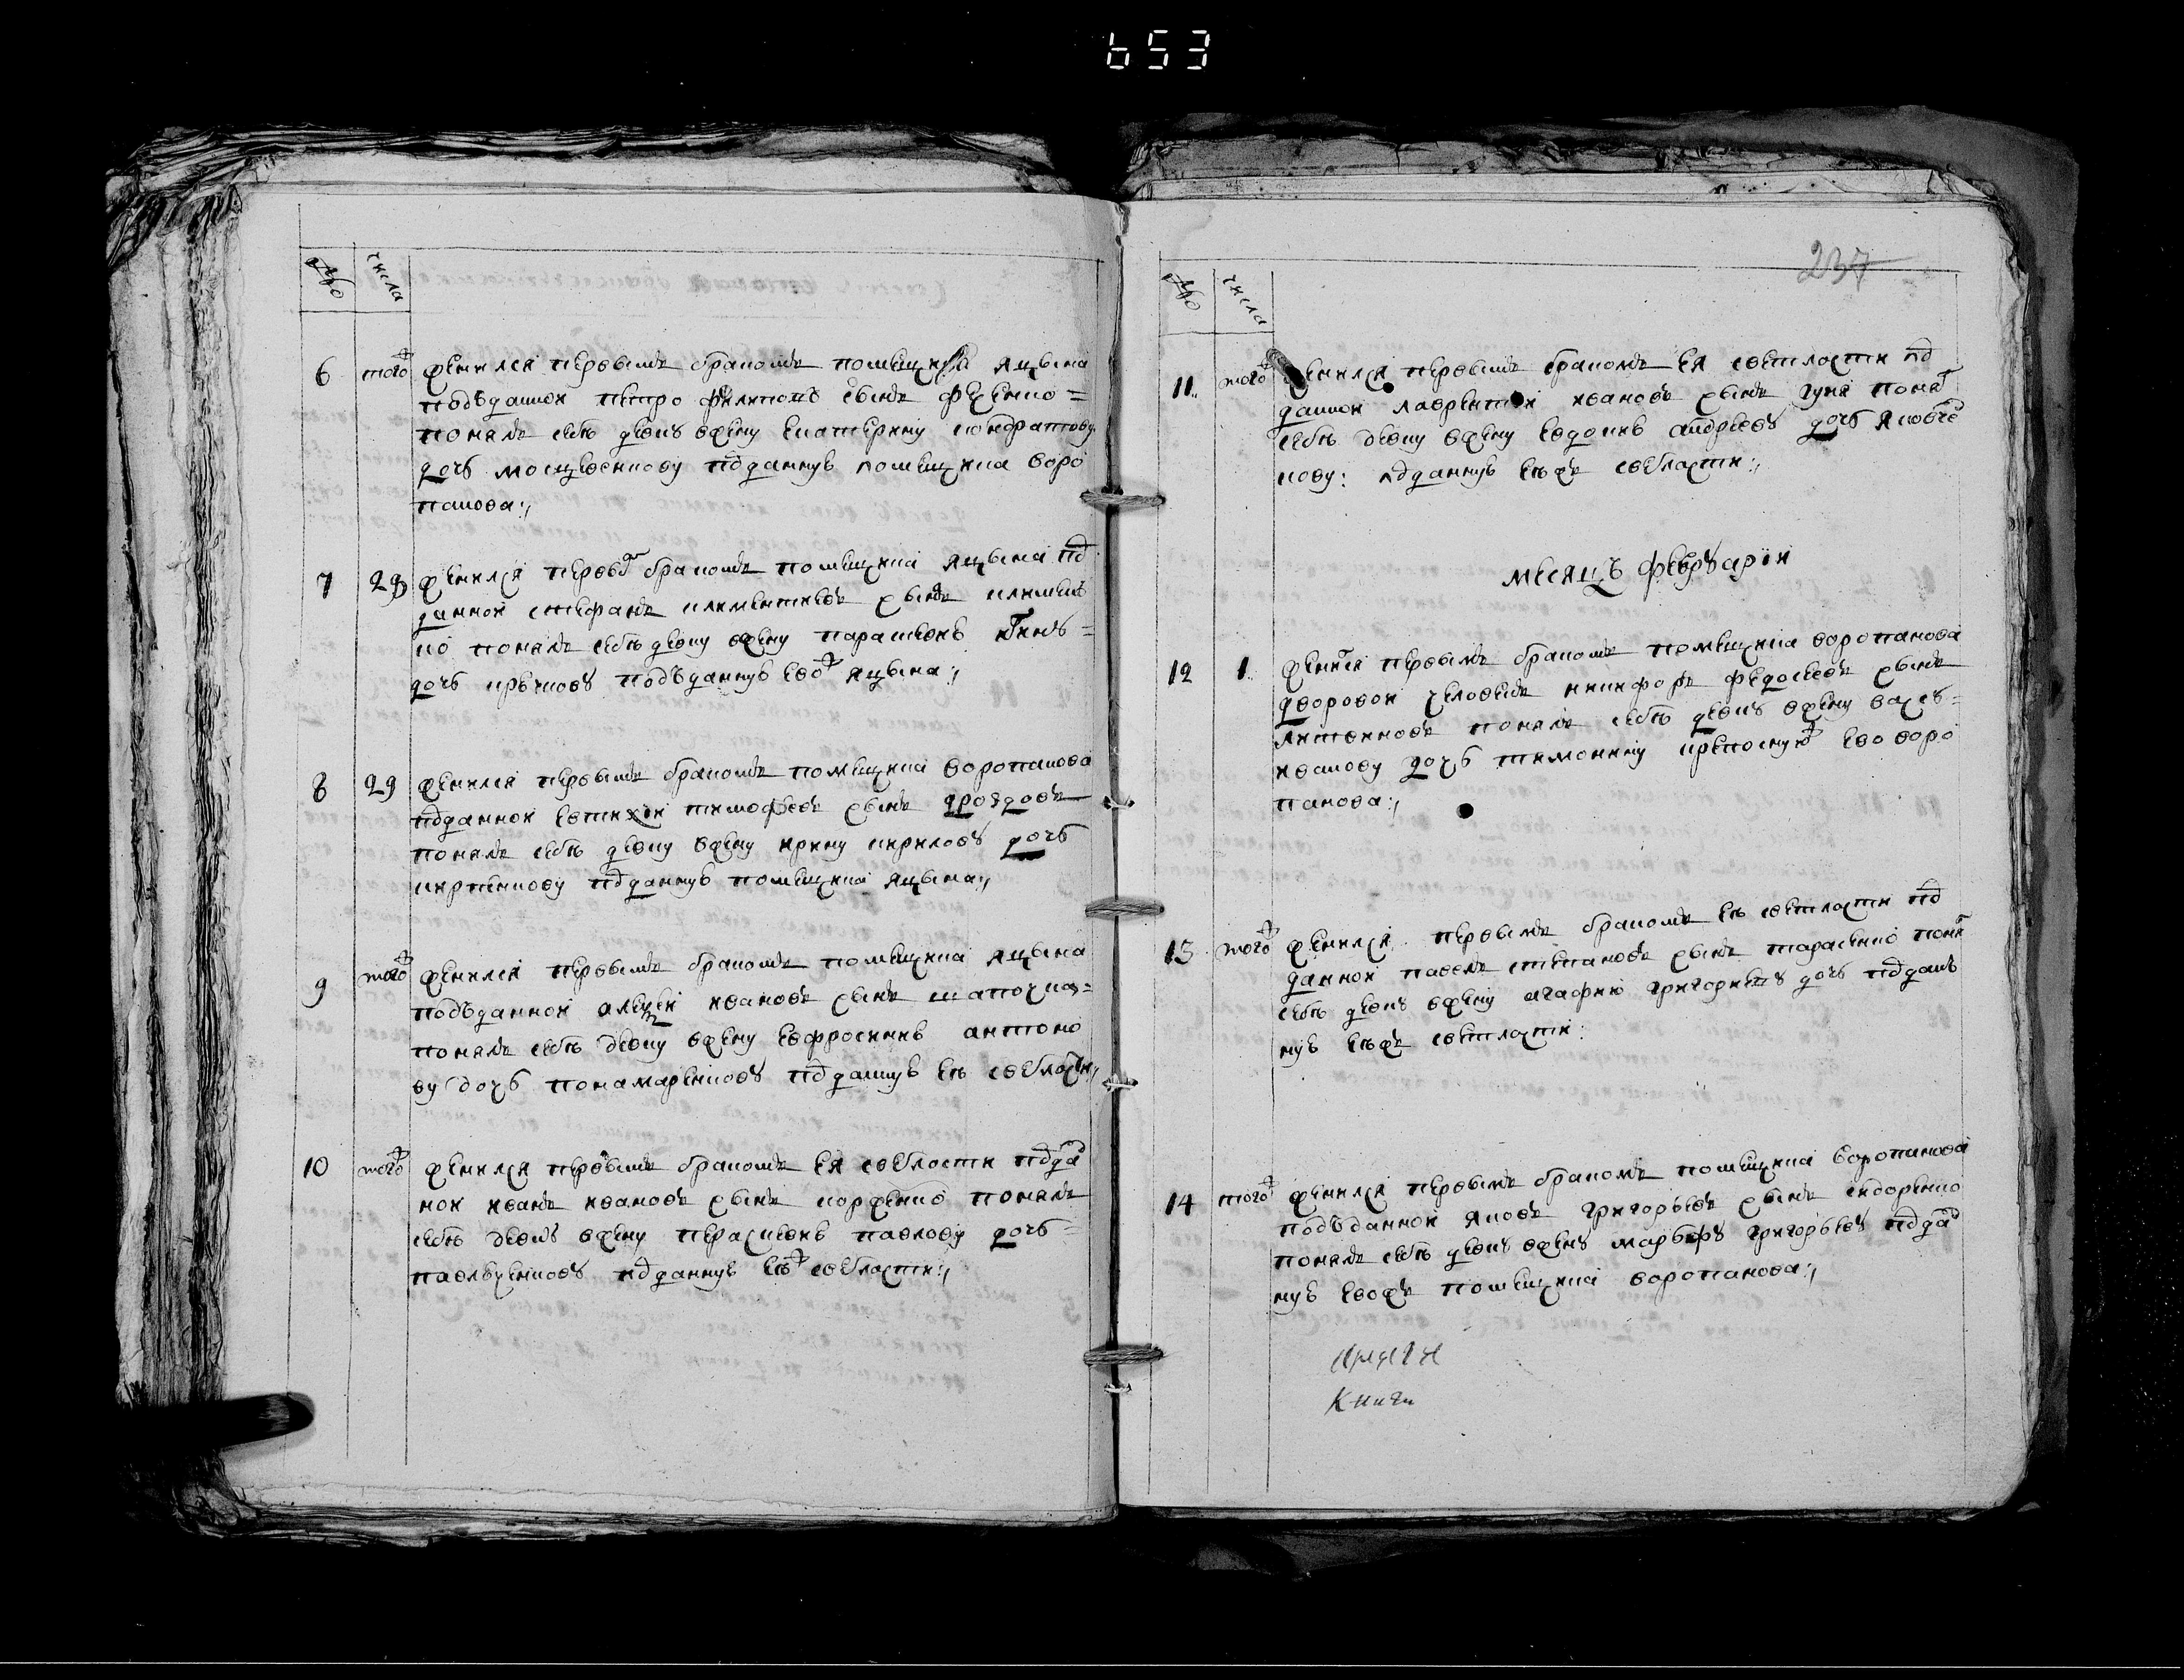 653
№ числа
6 тогож женился первымъ бракомъ помещика яцына
подъданной петро филиповъ сынъ феченко=
понялъ себѣ девку вжену екатерину кондратову
дочь мощвенкову подданную помещика воро
панова:,
7 29 женился первым бракомъ помещика яцына под
данной стефанъ климентиевъ сынъ
ко понялъ себѣ девку вжену парасковю
дочь крючкову подъданную евож яцына:,
8 29 женился первымъ бракомъ помещика воропанова
подданной евтихии тимофѣевъ сынъ дроздовъ
понялъ себѣ девку вжену ирину кирилову дочь
кирпенкову подданную помещика яцына:,
9 тогож женился первымъ бракомъ помещика яцына
подъданной алексеи ивановъ сынъ шапочка=
понялъ себѣ девку вжену евфросинию антоно
ву дочь понамаренкову подданную ея светлости,
10 тогож женился первымъ бракомъ ея светлости подда
ной иванъ ивановъ сынъ коржевко понялъ
себѣ девку вжену парасковю павлову дочь=
павлюченкову подданную еяж светлости:,
237
№ числа
11. тогож женился первымъ бракомъ ея светлости под
данной лаврентеи ивановъ сынъ понял
себѣ девку вжену евдокию андрееву дочь яковчен
кову: подданную еяже светлости:,
месяцъ февруарїи
12 1. женился первымъ бракомъ помещика воропанова
дворовой человекъ никифоръ федосеевъ сынъ
понялъ себѣ девку вжену васс=
иванову дочь тимонину крепосную ево воро
панова:,
13 тогож женился первымъ бракомъ ея светлости под
данной павелъ степановъ сынъ тарасенко понял
себѣ девку вжену агафию григориеву дочь поддан
ную еяже светлости:
14 тогож женился первымъ бракомъ помещика воропанова
подъданной яковъ григорьевъ сынъ сидоренко
понялъ себѣ девку вжену марьфу григорьеву подда
ную евоже помещика воропанова:,
книги